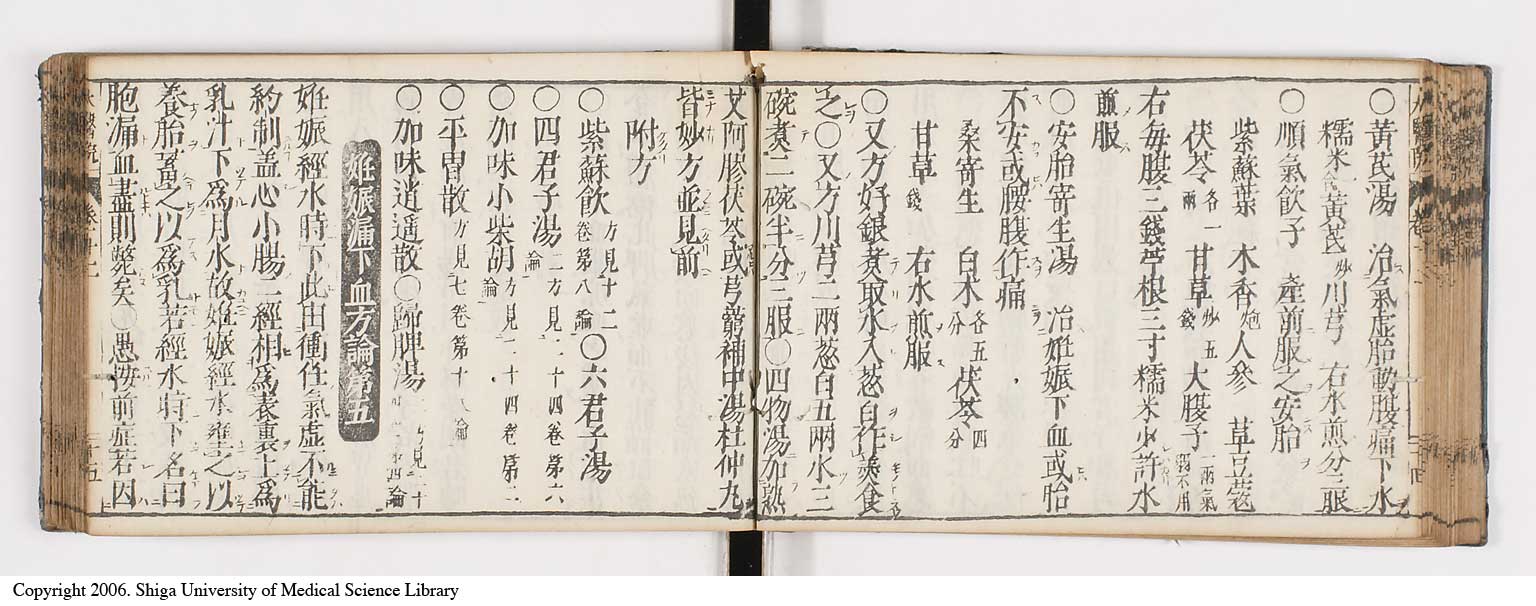 ○黃芪湯　治氣虛胎動腹痛下水
糯米合黃芪炒川芎　右水煎分三服
○順氣飲子　產前服之安胎
紫蘇葉　木香炮人參　草豆蔻
茯苓各一兩甘草炒五錢大腹子一兩氣弱不用
右每服三錢苧根三寸糯米少許水
煎服
○安胎寄生湯　治妊娠下血或胎
不安或腰腹作痛
桑寄生　白朮各五分茯苓四分
甘草錢　右水煎服
○又方好銀煮取水入葱白作羹食
之○又方川芎二兩葱白五兩水三
碗煮二碗半分三服○四物湯加熟
艾阿膠茯苓或芎藭補中湯杜仲丸
皆妙方並見前
附方
○紫蘇飲方見十二卷第八論○六君子湯
○四君子湯二方見二十四卷第六論
○加味小柴胡方見二十四卷第二論
○平胃散方見七卷第十八論
○加味逍遥散○歸脾湯方見二十四論
妊娠漏下血方論第五
妊娠經水時下此由衝任氣虛不能
約制蓋心小腸二經相爲表裏上爲
乳汁下爲月水故妊娠經水壅之以
養胎蓄之以爲乳若經水時下名曰
胞漏血盡則斃矣○愚按前症若因
Copyright 2006. Shiga University of Medical Science Library